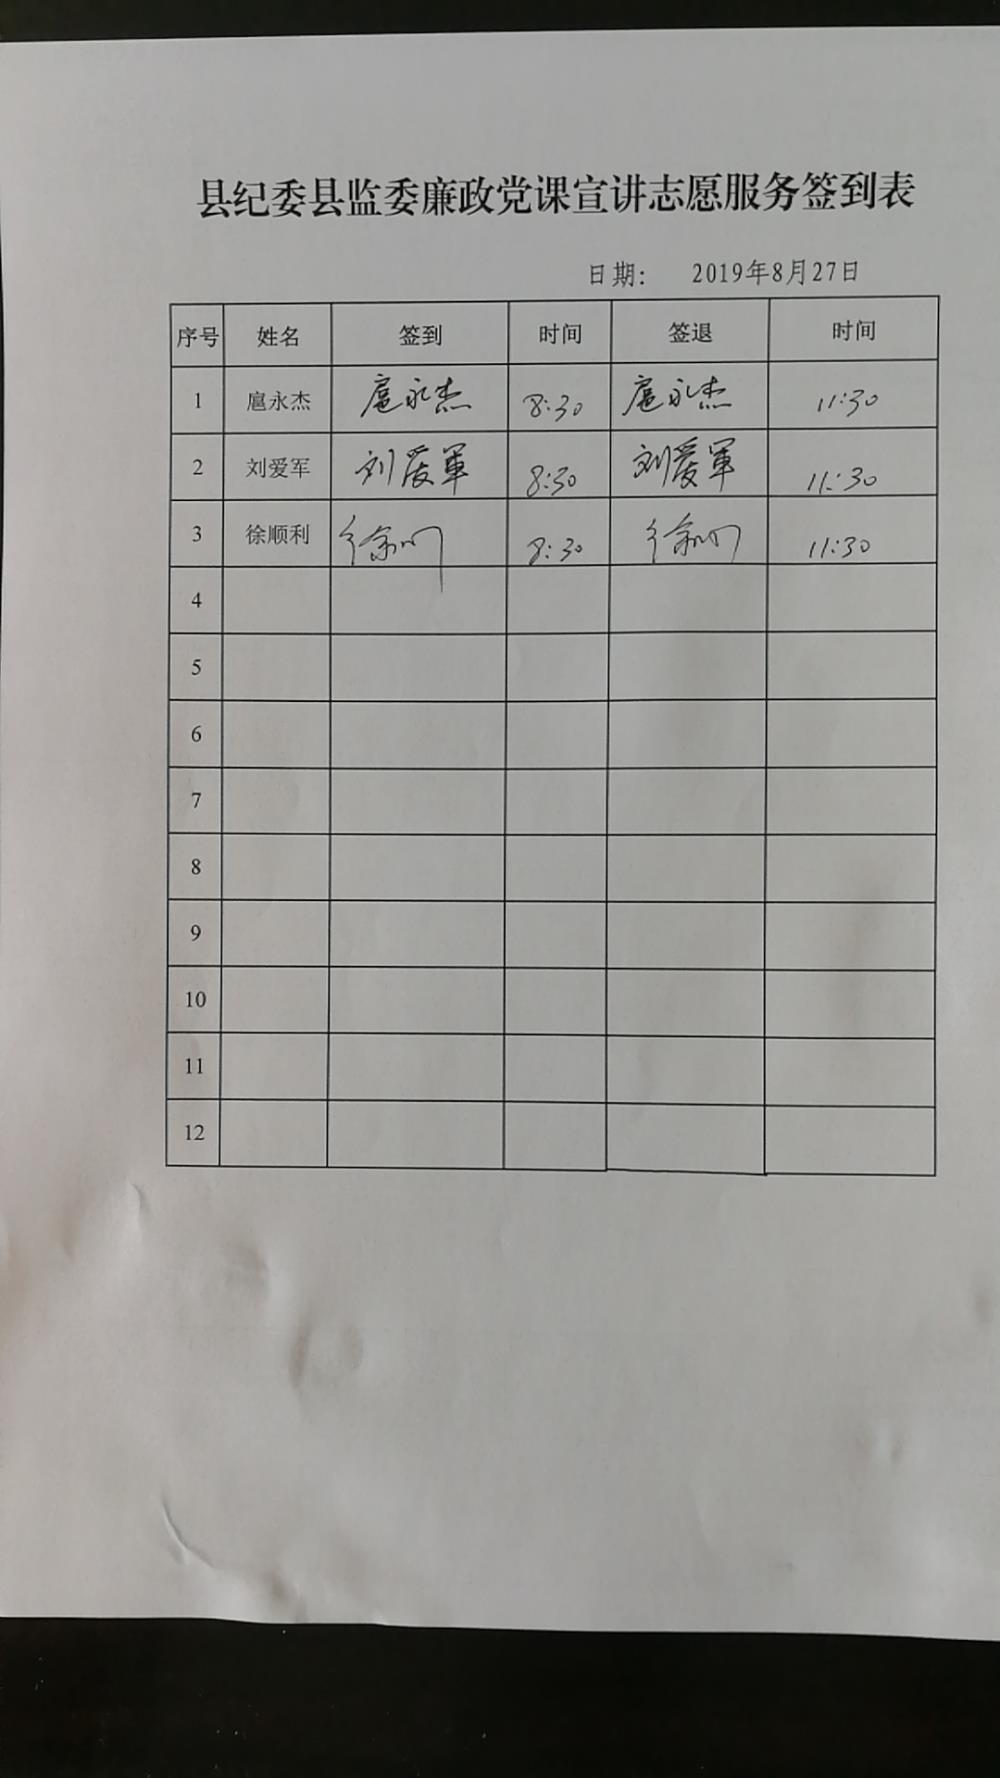 县纪委县监委廉政党课宣讲志愿服务签到表
日期： 2019年8月27日
序号 姓名 签到 时间 签退 时间
1 扈永杰 扈永杰 8:30 扈永杰 11:30
2 刘爱军 刘爱軍 8:30 刘爱軍 11:30
3 徐顺利 徐 8:30 徐 11:30
4
5
6
7
8
9
10
11
12